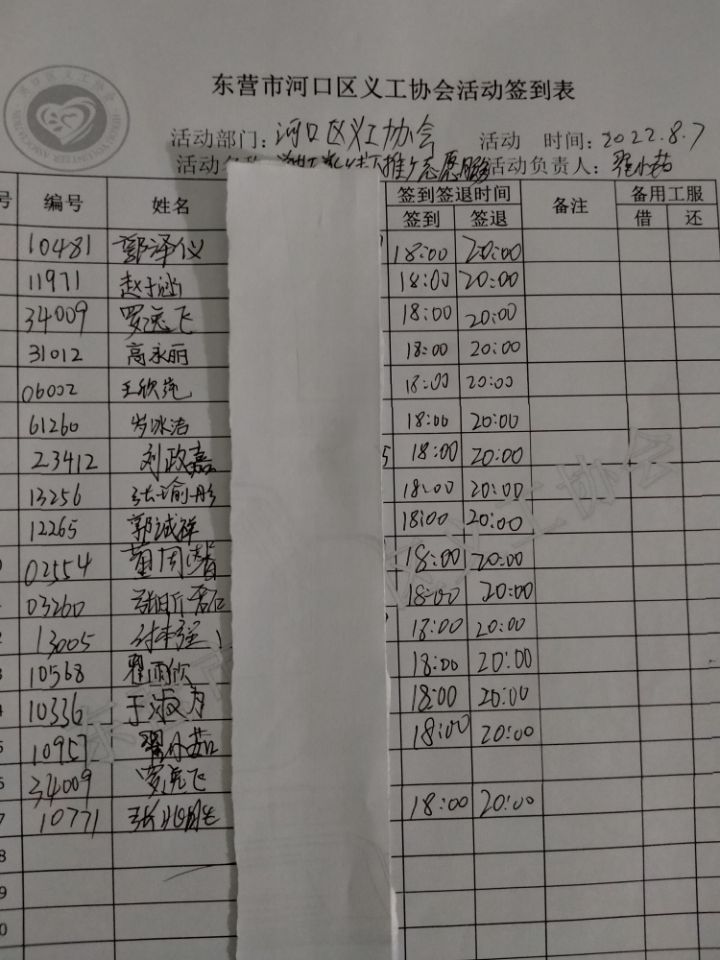 东营市河口区义工协会活动签到表
活动部门：河口区义工协会 活动 时间：2022.8.7
活动 活动负责人：翟小茹
号 编号 姓名 签到签退时间 备注 备用工服
签到 签退 借 还
10481 郭泽仪 18:00 20:00
11971 赵子涵 18:00 20:00
34009 罗远飞 18:00 20:00
31012 高永丽 18:00 20:00
06002 王欣苑 18:00 20:00
61260 岁冰洁 18:00 20:00
23412 刘政嘉 5 18:00 20:00
13256 张瑜彤 18:00 20:00
12265 郭诚祥 18:00 20:00
0 02554 董周馨 18:00 20:00
03260 18:00 20:00
2 13005 18:00 20:00
3 10568 翟雨欣 18:00 20:00
4 10336 于淑月 18:00 20:00
5 10957 翟小茹 18:00 20:00
6 34009 罗远飞
7 10771 18:00 20:00
8
9
0